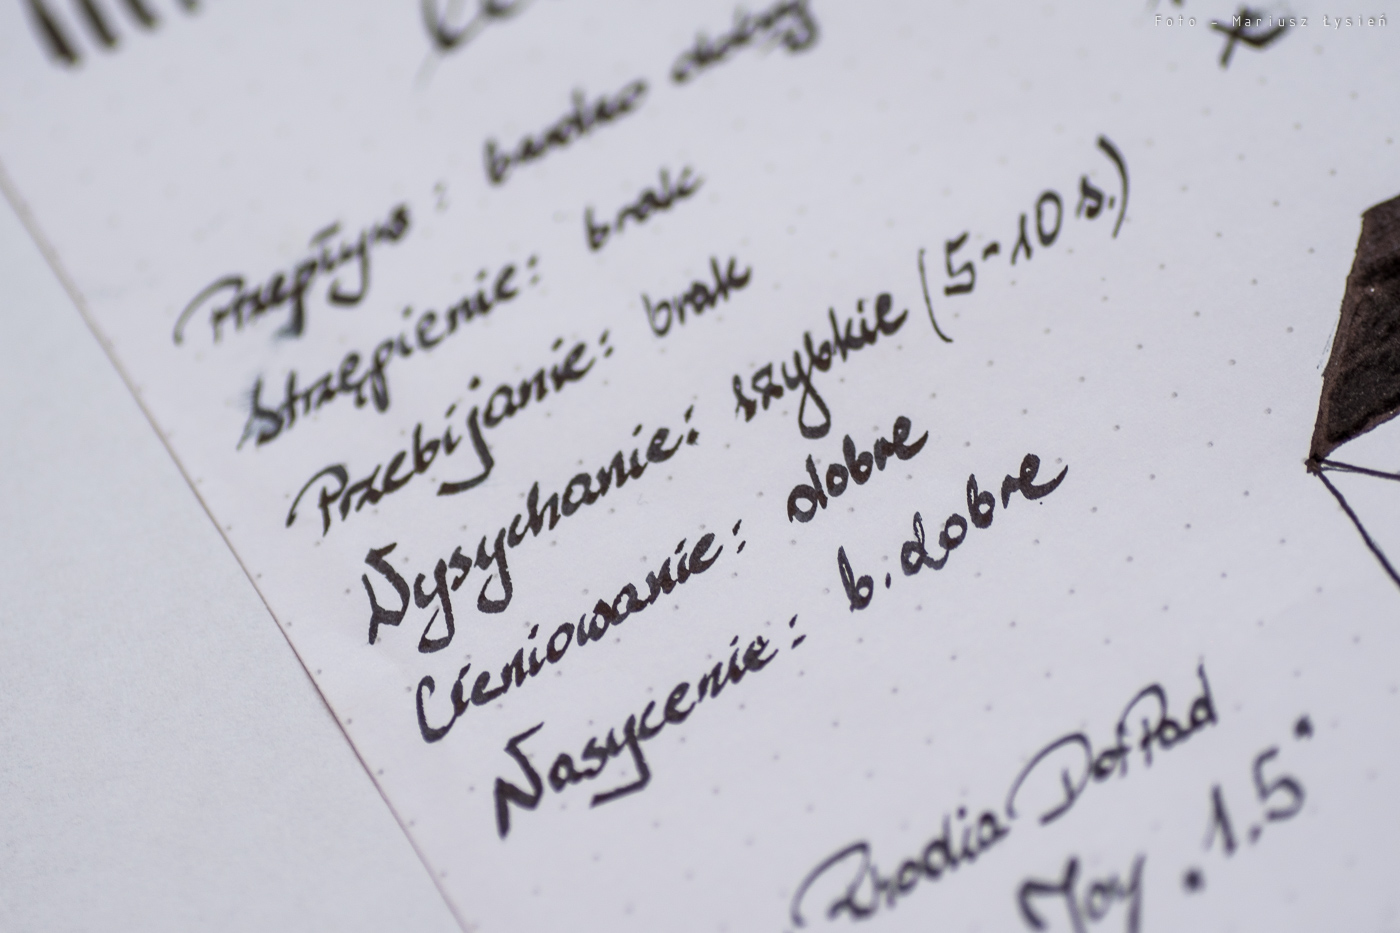 Foto - Mariusz Łysień
Przepływ: bardzo dobry
Strzępienie: brak
Przebijanie: brak
Wysychanie: szybkie (5-10 s.)
Cieniowanie: dobre
Nasycenie: b. dobre
Rhodia DotPad
Joy. 1.5"